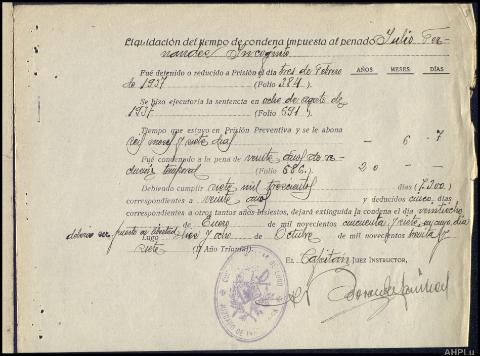 Liquidación del tiempo de condena impuesta al penado Julio Fer-
nandez Incognito
Fué detenido o reducido a Prisión el día tres de Febrero
de 1937 (Folio 284) AÑOS MESES DÍAS
Se hizo ejecutoria la sentencia en ocho de agosto de
1937 (Folio 591)
Tiempo que estuvo en Prisión Preventiva y se le abona
seis meses y siete días — 6 - 7
Fué condenado a la pena de veinte años de re-
clusión temporal (Folio 586) 20 — —
Debiendo cumplir siete mil trescientos días (7.300)
correspondientes a veinte años y deducidos cinco, días
correspondientes a otros tantos años bisiestos, dejará extinguida la condena el día veintiocho
de Enero de mil novecientos cincuenta y siete, en cuyo día
deberá ser puesto en libertad
Lugo y ocho de Octubre de mil novecientos treinta y
siete (II Año Triunfal).
EL Capitán JUEZ INSTRUCTOR,
JUZGADO DE
AHPLu